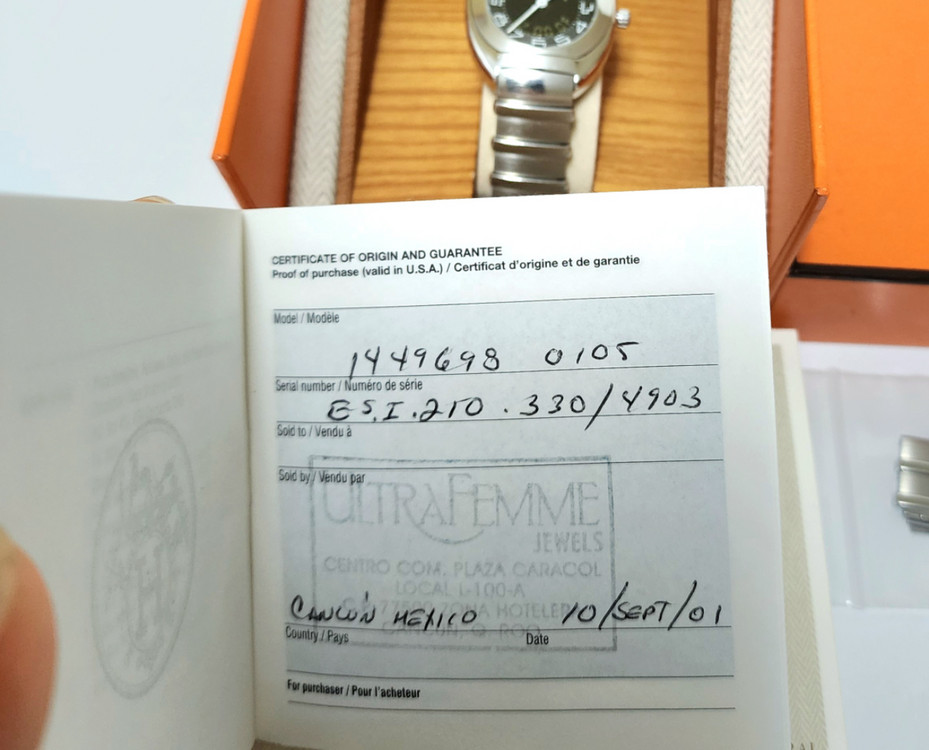 CERTIFICATE OF ORIGIN AND GUARANTEE
Proof of purchase (valid in U.S.A.) / Certificat d'origine et de garantie
Model / Modèle
1449698 0105
Serial number / Numéro de série
ES.I.210.330/4903
Sold to / Vendu à
Sold by / Vendu par
ULTRAFEMME
JEWELS
CENTRO COM. PLAZA CARACOL
LOCAL L-100-A
ZONA HOTELERA
CANCÚN MEXICO 10/SEPT/01
CANCUN, Q. ROO
Country / Pays Date
For purchaser / Pour l'acheteur